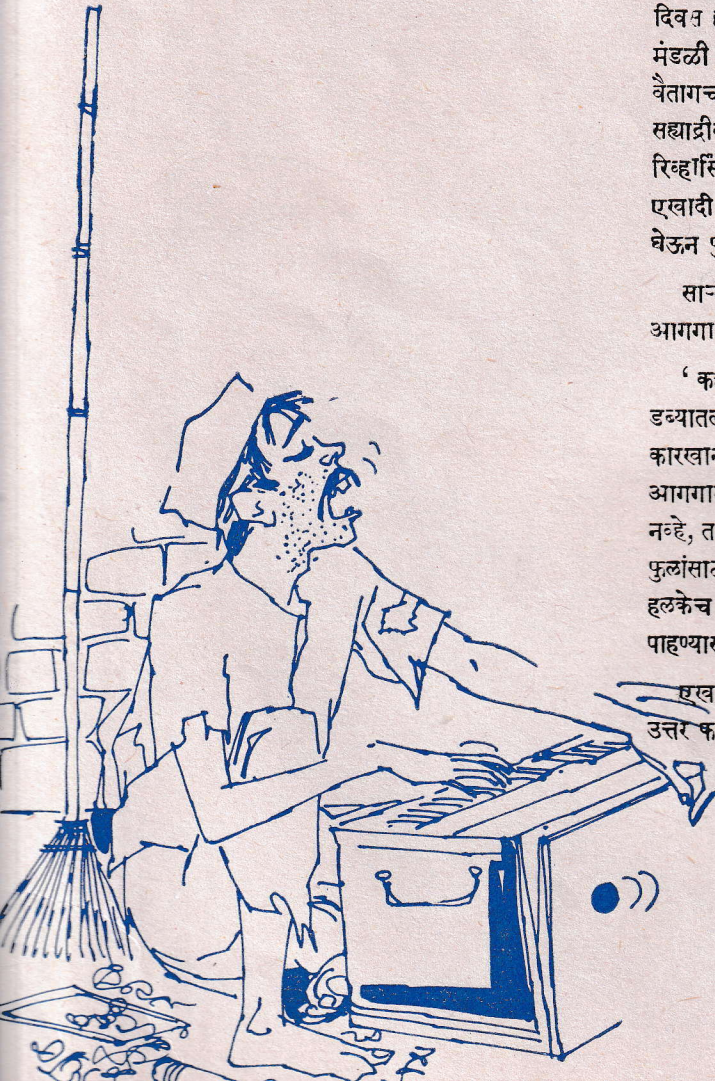 दिवस
मंडळी
वैतागच
सह्याद्री
रिव्हर्सि
एखादी
घेऊन
सा
आगगा
‘ क
डब्यातल
कारखान
आगगा
नव्हे, त
फुलांसाठ
हलकेच
पाहण्यास
एख
उत्तर